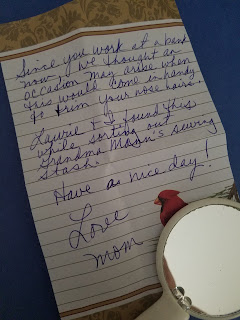 Since you work at a bank
now, we thought an
occasion may arise when
this would come in handy
to trim your nose hairs.
Laurie & I found this
while sorting out
Grandma Mann's sewing
stash.
Have a nice day!
Love
Mom